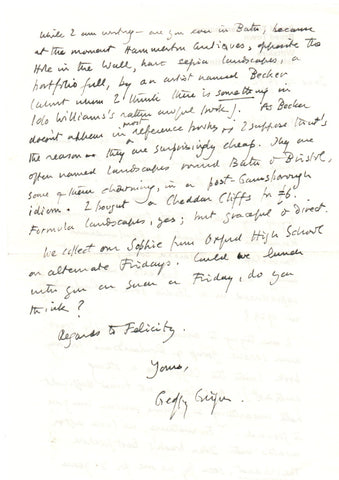 While I am writing — are you ever in Bath, because
at the moment Hammerton Antiques, opposite the
Hole in the Wall, have sepia landscapes, a
portfolio full, by an artist named Becker
(about whom I think there is something in
Iolo Williams's rather awful book). As Becker
doesn't appear in most reference books, I suppose that's
the reason — they are surprisingly cheap. They are
often named landscapes round Bath & Bristol,
some of them charming, in a post-Gainsborough
idiom. I bought a Cheddar Cliffs for £6.
Formula landscapes, yes; but graceful & direct.
We collect our Sophie from Oxford High School
on alternate Fridays. Could we lunch
with you on such a Friday, do you
think?
Regards to Felicity.
Yours,
Geoffrey